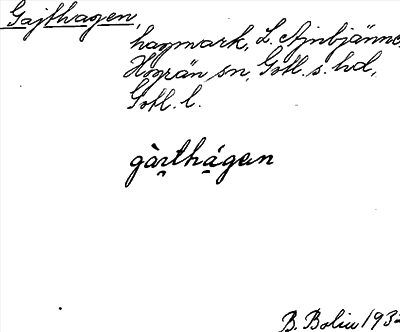 Gajthagen,
hagmark, L. Ajnbjänne,
Hogrän sn, Gotl. s. hd,
Gotl. l.
gàrthágen
B. Bolin 193